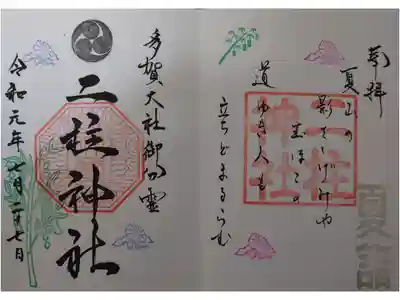 奉拝
夏山の
影をしげみや
玉ほこの
道ゆき人も
立ちどまるらむ
二柱神社
夏詣
多賀大社御分霊
二柱神社
令和元年七月二十七日